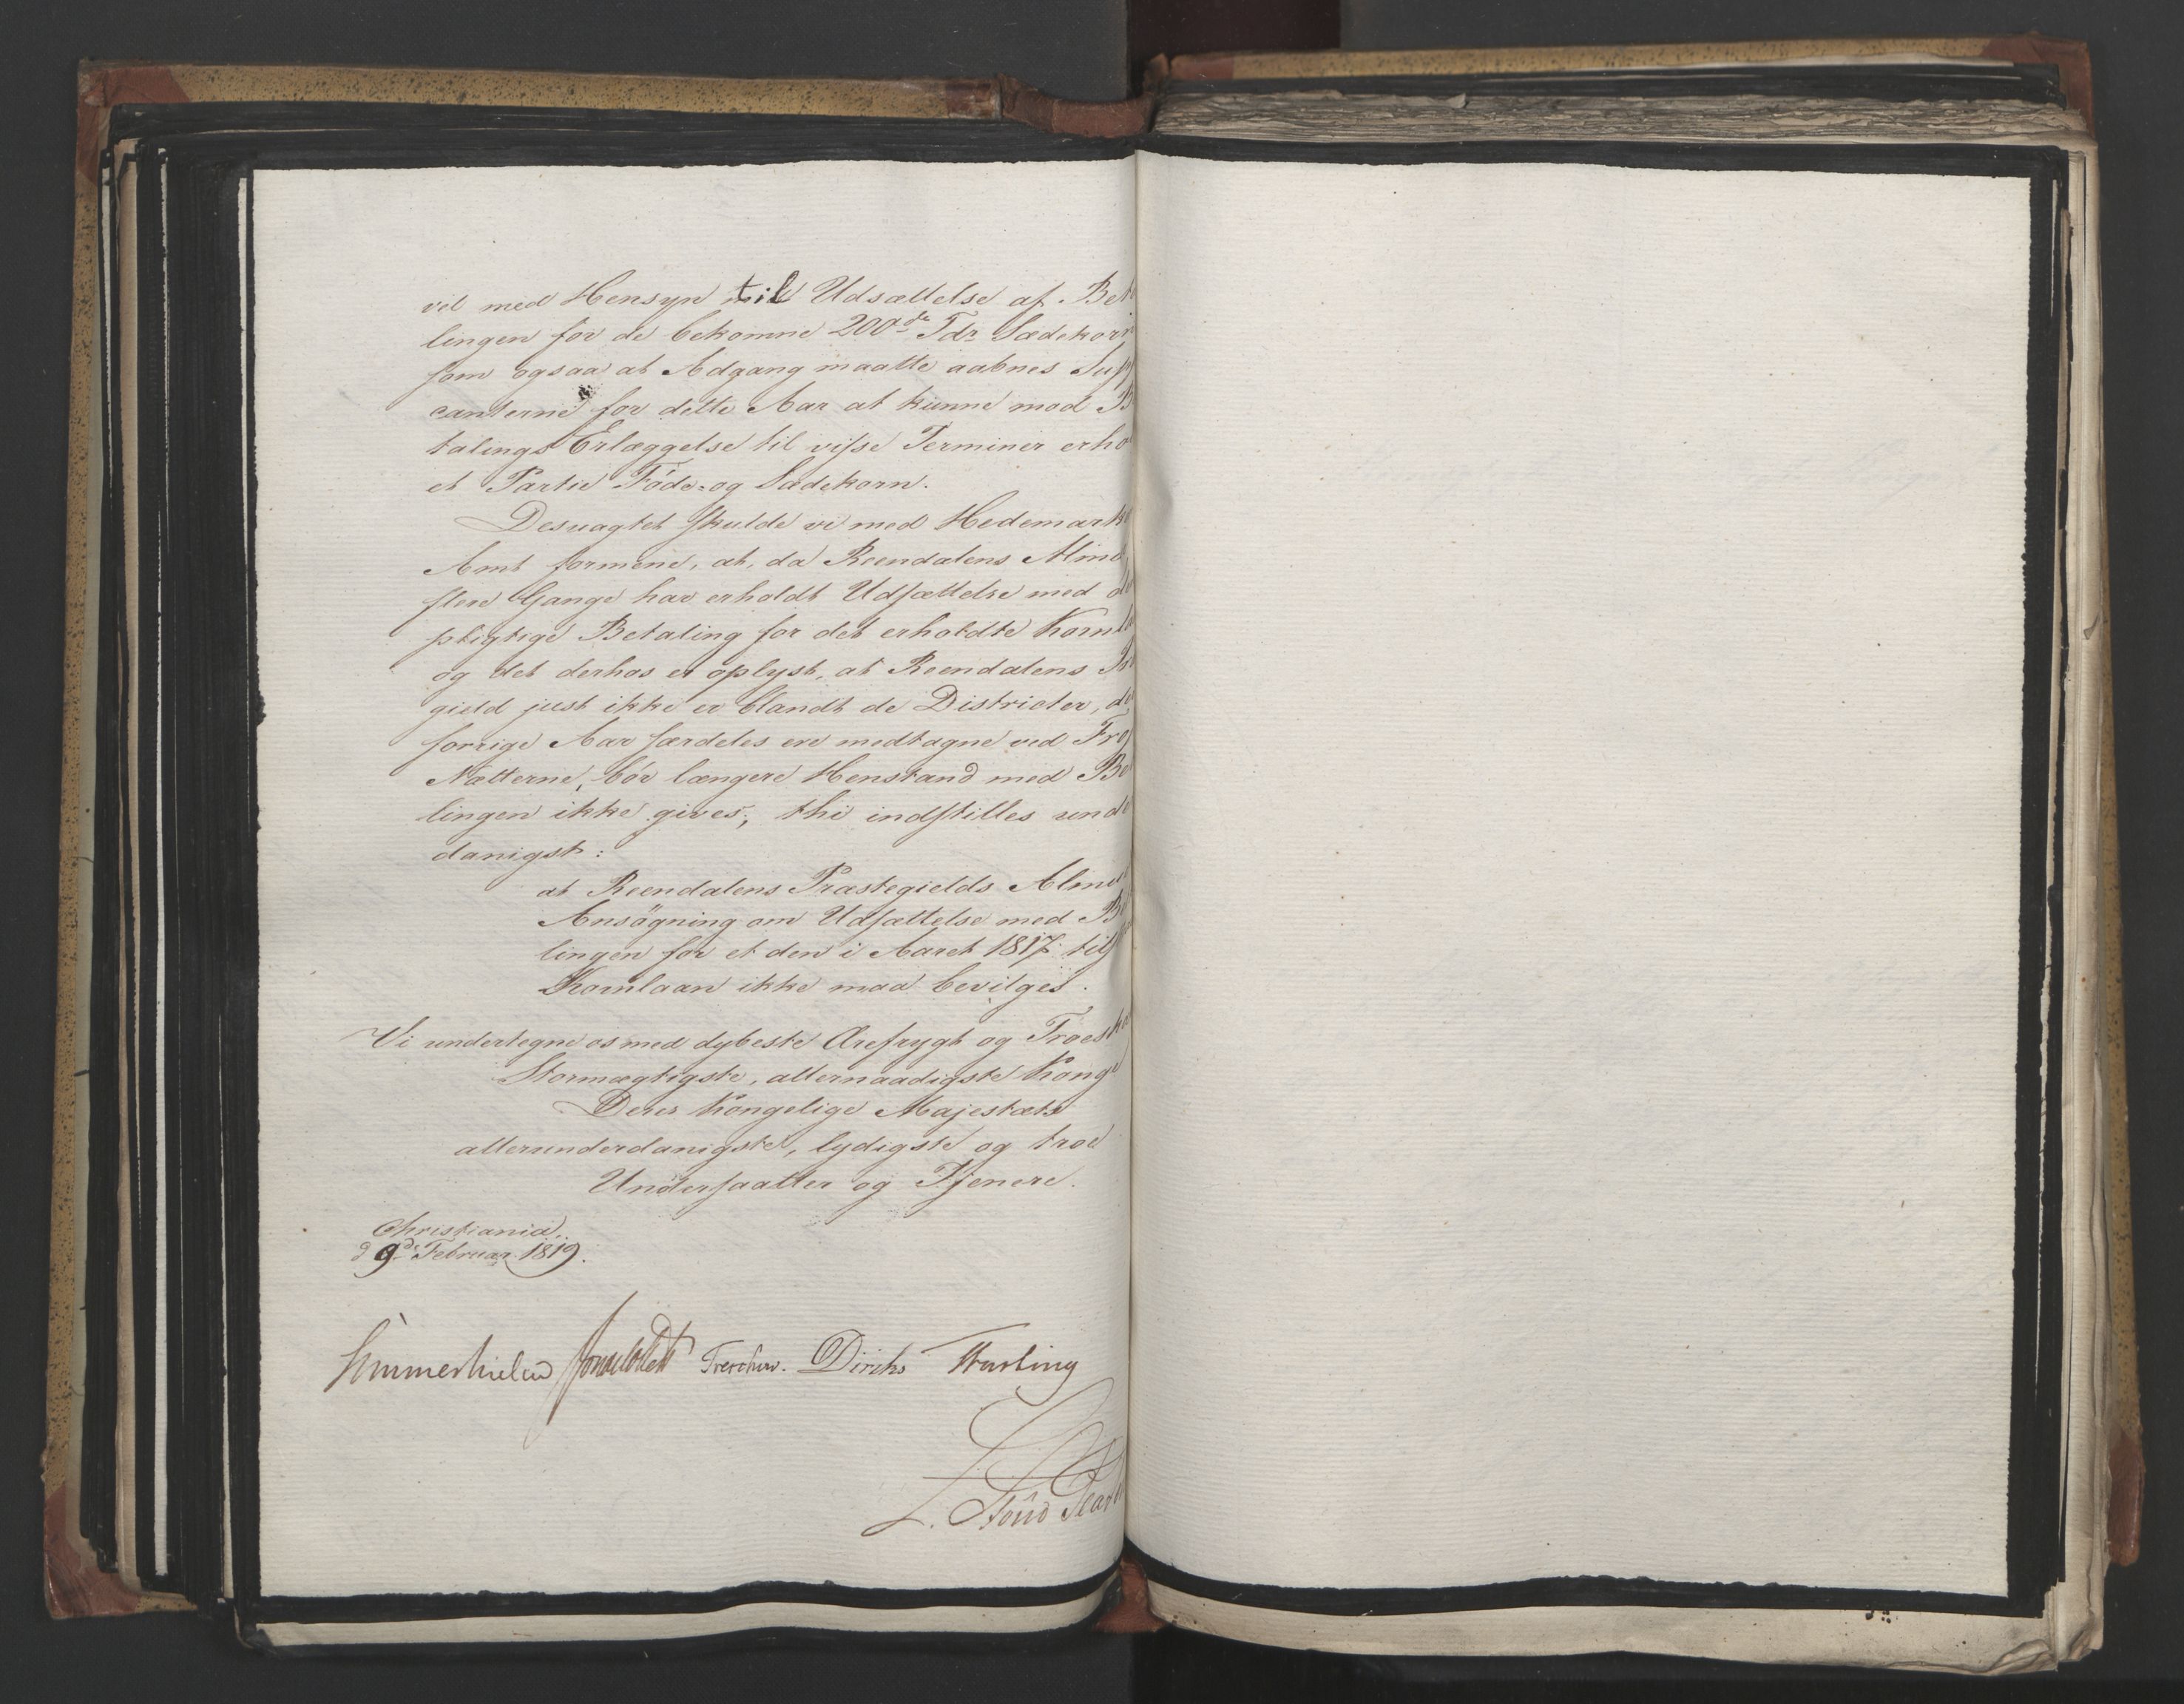 vel med Hensyn til Udsættelse af Beta
lingen for de bekomne 200de Tdr Sædekorn
som ogsaa at Adgang maatte aabnes Supp
canterne for dette Aar at kunne mod B
talings Erlæggelse til visse Terminer erho
et Partie Føde- og Sædekorn.
Desuagtet skulde vi med Hedemark
Amt formene, at, da Reendalens Almu
flere Gange har erholdt Udsættelse med d
pligtige Betaling for det erholdte Kornla
og det derhos er oplyst, at Reendalens
gield just ikke er blandt de Districter, de
forrige Aar særdeles ere medtagne ved Fro
Nætterne, bør længere Henstand med Be
lingen ikke gives; thi indstilles unde
danigst:
at Reendalens Præstegields Almu
Ansøgning om Udsættelse med B
lingen for et den i Aaret 1817 til
Kornlaan ikke maa bevilges.
Vi undertegne os med dybeste Ærefrygt og Troesk
Stormægtigste, allernaadigste Konge
Deres Kongelige Majestæts
allerunderdanigste, lydigste og troe
Undersaatter og Tjenere.
Christiania
d 9de Februar 1819.
Sommerhielm Treschow. Diriks